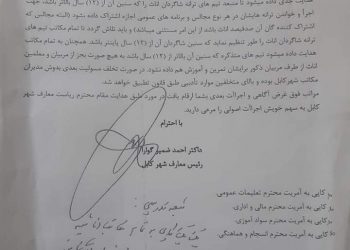 هدایت جدی داده میشود تا منبعد تیم های ترانه شاگردان اناث را که سنین آن بالاتر از (۱۲) سال باشد، جهت
اجرا و خوانش ترانه هایشان در هر نوع مجالس و برنامه های عمومی اجازه اشتراک داده نشود (البته مجالس که
اشتراک کننده گان آن صدفیصد اناث باشد از این امر مستثنی میباشد) وباید تلاش گردد تا تمام مکاتب تیم های
ترانه شاگردان اناث را طور تنظیم نماید که سنین شاگردان آن از (۱۲) سال پایینتر باشد. همچنان به تمام مکاتب
هدایت داده میشود تا تیم های ترانه اناث را که سنین آن بالاتر از (۱۲) سال باشد به هیچ صورت بجز از مربیان و معلمین
اناث از طرف مربیان ذکور برایشان تمرین و آموزش هم داده نشود. در صورت تخلف مسولیت بعدی بدوش مدیران
مکاتب شهرکابل بوده و بالای متخلفین موارد تأدیبی طبق قانون تطبیق خواهد شد.
مراتب فوق غرض آگاهی و اجراآت بعدی بشما ارقام یافت در مورد طبق هدایت مقام محترم ریاست معارف شهر
کابل به سهم خویش اجراآت اصولی را مرعی دارید.
با احترام
داکتر احمد ضمیر گوارا
رئیس معارف شهر کابل
کاپی به آمریت محترم تعلیمات عمومی
کاپی به آمریت محترم مالی و اداری.
کاپی به آمریت محترم سواد آموزی.
کاپی به آمریت محترم انسجام و هماهنگی.